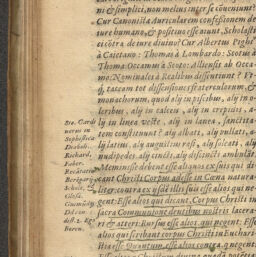 ni & simplici, non melius inter se conueniunt?
Cur Canonistæ Auricularem confessionem de
iure humano, & positiuo esse aiunt, Scholasti
ci cōtra de iure diuino? Cur Albertus Pighiº
à Caietano: Thomas à Lombardo: Scotus à
Thoma: Occamus à Scoto: Alliensis ab Occa
mo: Nominales à Realibus dissentiunt?
taceam tot dissensiones fraterculorum, &
monachorum, quod alij in piscibus, alij in o-
leribus, alij in calceis, alij in crepidis, a-
lij in linea veste, alij in lanea, sanctita-
tem constituunt? alij albati, alij pullati, a-
lij latius, alij angustius rasi, alij soleati, alij
nudipedes, alij cincti, alij discincti ambulāt.
Meminisse debent esse aliquos ex suis qui di-
cant Christi Corpus adesse in Cœna natura
liter: contra ex ijsdē illis suis esse alios qui ne-
gent: Esse alios qui dicant, Corpus Christi in
sacra Communione dentibus nostris lacera-
ri & atteri: Rursus esse alios qui negent: Esse
alios qui scribant corpus Christi in Eucharis
tia esse Quantum, esse alios contra qui negent:
Ste. Gardi
nerus in
Sophistica
Diaboli.
Richard.
Faber.
Recātatio
Berēgarij
Schole, &
Glosa.
Guimūdus
De con.
dist. 2. Ego
Beren.